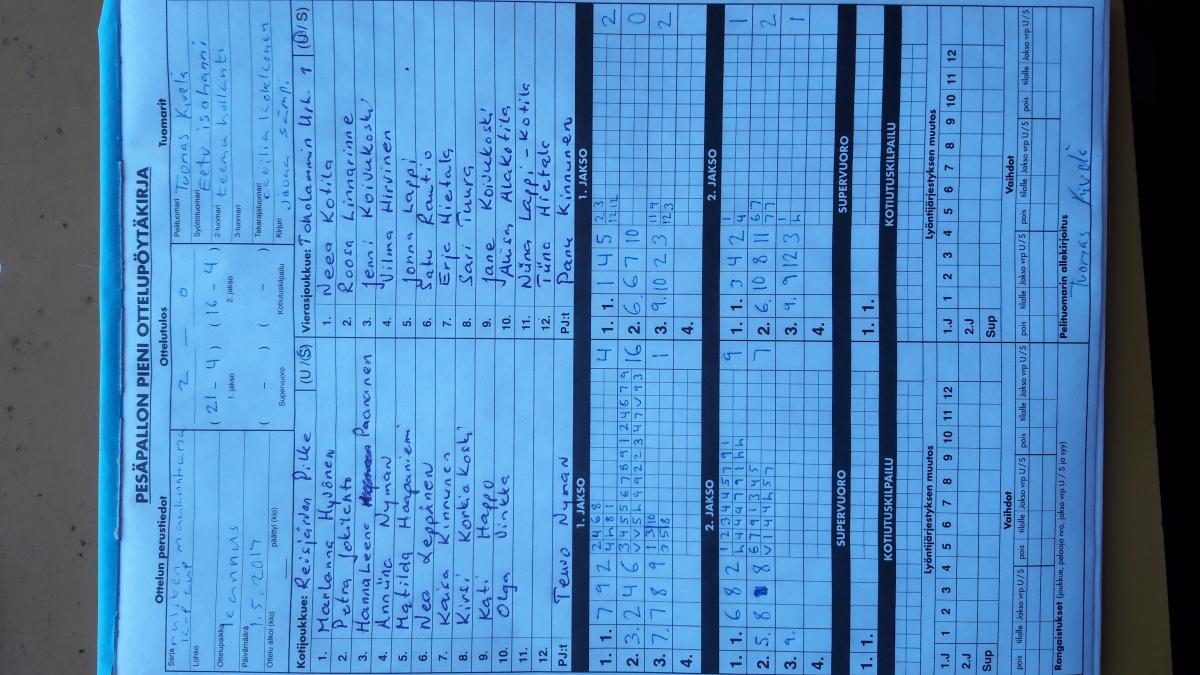 PESÄPALLON PIENI OTTELUPÖYTÄKIRJA
Ottelun perustiedot
Ottelutulos
Tuomarit
Sarja naisten maakuntasarja
k-p cup
Lohko
Ottelupaikka
Päivämäärä 1.5.2019
Ottelu alkoi (klo) päättyi (klo)
2 – 0
( 21 – 4 ) ( 16 – 4 )
1. jakso 2. jakso
( – ) ( – )
Supervuoro Kotiutuskilpailu
Pelituomari Tuomas Kivelä
Syöttötuomari Eetu isohanni
2-tuomari teemu hollanti
3-tuomari
Takarajatuomari
Kirjuri Joona sämpi
Kotijoukkue: Reisjärven Pilke (U/S)
1. Marianna Hyvönen
2. Petra Jokilehto
3. HannaLeene Paananen
4. Anniina Nyman
5. Matilda Haapaniemi
6. Nea Leppänen
7. Kaisa Kinnunen
8. Kirsi Konkia Koski
9. Kati Happo
10. Olga Vinkka
11.
12.
PJ:t Teuvo Nyman
Vierasjoukkue: Toholammin Urh. 1 (U/S)
1. Neea Kotila
2. Roosa Linnarinne
3. Jenni Koivukoski
4. Vilma Hirvinen
5. Jonna Lappi
6. Satu Rautio
7. Erja Hietala
8. Sari Tuura
9. Jane Koivukoski
10. Ahisa Alakotila
11. Niina Lappi-Kotila
12. Tiina Hietala
PJ:t Panu Kinnunen
1. JAKSO
1. 1. 7 9 2 2 4 6 8 4
4 h 8 1
2. 3. 2 4 6 3 4 5 5 6 7 8 9 1 2 4 6 7 9 16
v v 5 h 4 9 2 2 3 4 7 v 9 3
3. 7. 7 8 9 1 3 10 1
7 5 8
4.
1. JAKSO
1. 1. 1 4 5 2 3 2
12 12
2. 6. 6 7 10 0
3. 9. 10 2 3 11 9 2
12 3
4.
2. JAKSO
1. 1. 6 8 2 1 2 3 4 4 5 7 9 1 9
h 4 4 4 7 9 1 h h
2. 5. 8 8 6 7 9 1 3 4 5 7
v 1 4 4 h 5 7
3. 9.
4.
2. JAKSO
1. 1. 3 4 2 1 1
4
2. 6. 10 8 11 6 7 2
7 7
3. 9. 9 12 3 1 1
h
4.
SUPERVUORO
1. 1.
SUPERVUORO
1. 1.
KOTIUTUSKILPAILU
KOTIUTUSKILPAILU
Lyöntijärjestyksen muutos
1.J 1 2 3 4 5 6 7 8 9 10 11 12
2.J
Sup
Lyöntijärjestyksen muutos
1.J 1 2 3 4 5 6 7 8 9 10 11 12
2.J
Sup
Vaihdot
pois tilalle Jakso vrp U/S pois tilalle Jakso vrp U/S pois tilalle Jakso vrp U/S
Vaihdot
pois tilalle Jakso vrp U/S pois tilalle Jakso vrp U/S pois tilalle Jakso vrp U/S
Rangaistukset (joukkue, pelaaja nro, jakso vrp U / S ja syy)
Pelituomarin allekirjoitus
Tuomas Kivelä